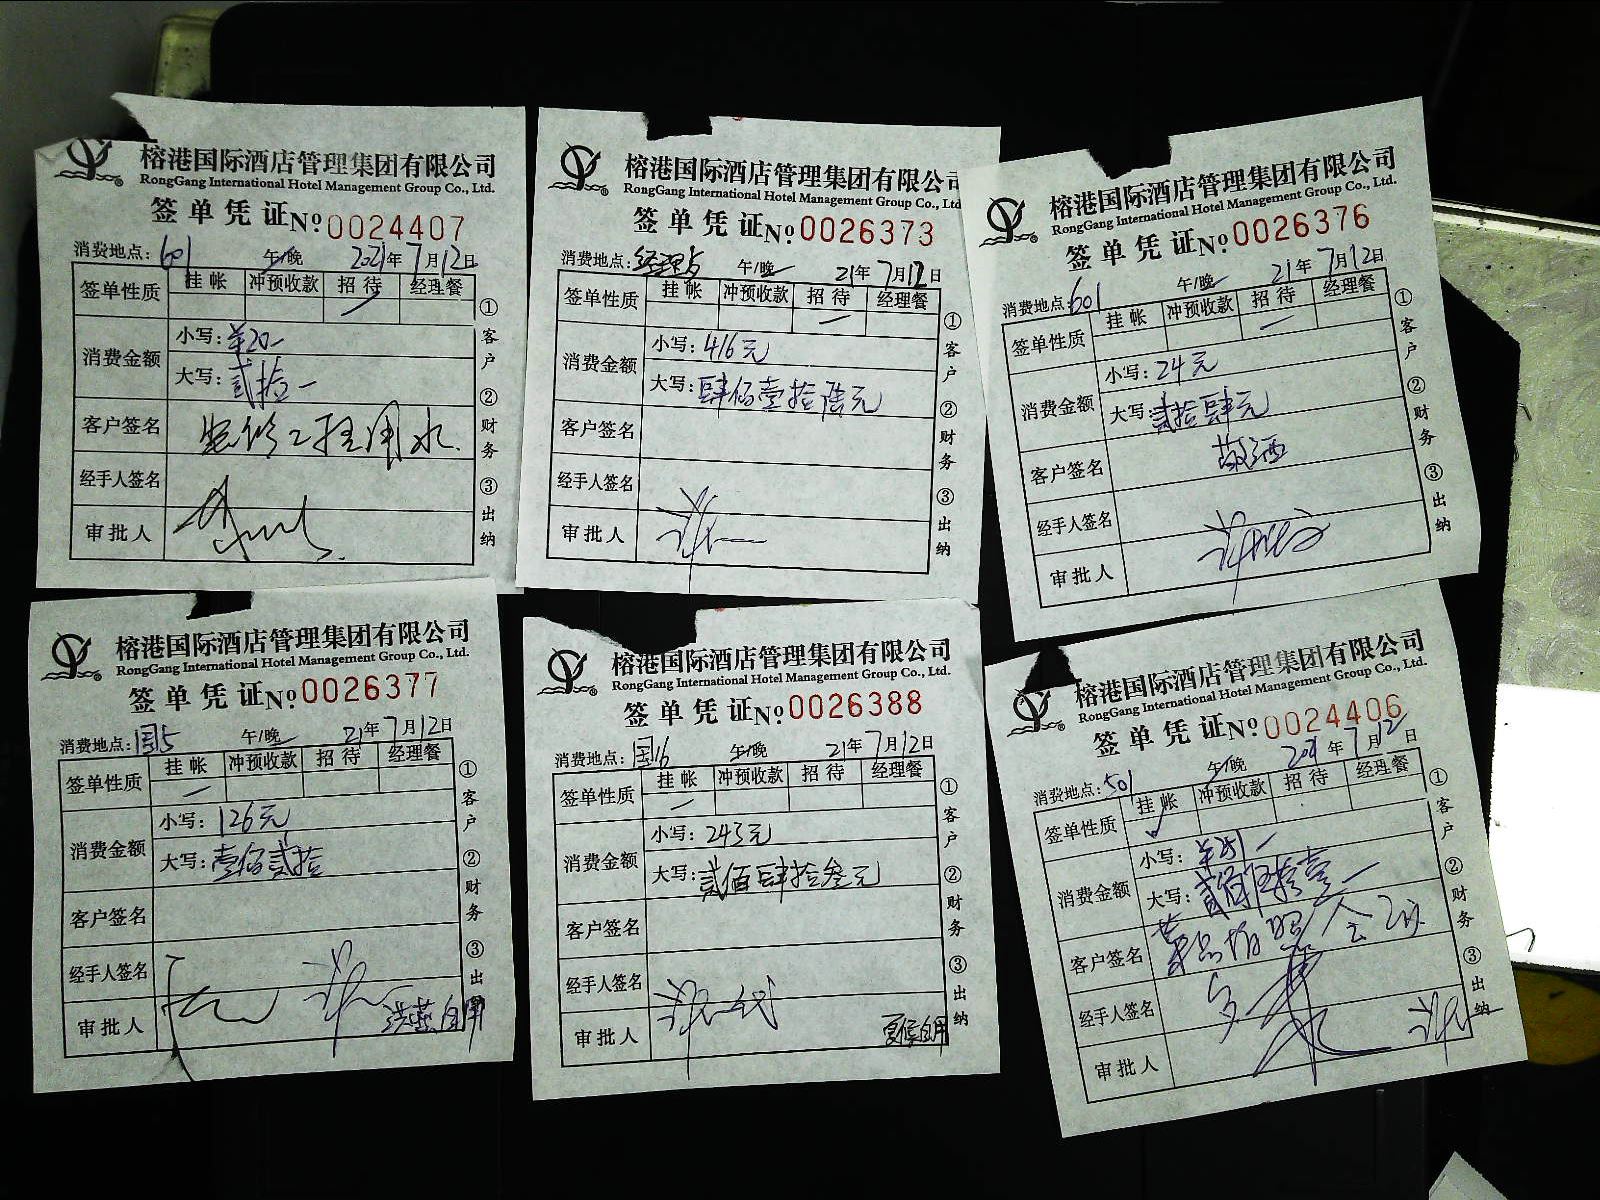 榕港国际酒店管理集团有限公司
RongGang International Hotel Management Group Co., Ltd.
签单凭证 Nº 0024407
消费地点: 601 午/晚 2021年7月12日
签单性质 挂帐 冲预收款 招待 经理餐
消费金额 小写: ¥20-
大写: 贰拾一
客户签名 装修工程用水.
经手人签名
审批人
①客户 ②财务 ③出纳
榕港国际酒店管理集团有限公司
RongGang International Hotel Management Group Co., Ltd.
签单凭证 Nº 0026373
消费地点: 经理 午/晚 21年7月12日
签单性质 挂帐 冲预收款 招待 经理餐
消费金额 小写: 416元
大写: 肆佰壹拾陆元
客户签名
经手人签名
审批人
①客户 ②财务 ③出纳
榕港国际酒店管理集团有限公司
RongGang International Hotel Management Group Co., Ltd.
签单凭证 Nº 0026376
消费地点: 601 午/晚 21年7月12日
签单性质 挂帐 冲预收款 招待 经理餐
消费金额 小写: 24元
大写: 贰拾肆元
客户签名 敬酒
经手人签名
审批人
①客户 ②财务 ③出纳
榕港国际酒店管理集团有限公司
RongGang International Hotel Management Group Co., Ltd.
签单凭证 Nº 0026377
消费地点: 国5 午/晚 21年7月12日
签单性质 挂帐 冲预收款 招待 经理餐
消费金额 小写: 126元
大写: 壹佰贰拾
客户签名
经手人签名
审批人 自用
①客户 ②财务 ③出纳
榕港国际酒店管理集团有限公司
RongGang International Hotel Management Group Co., Ltd.
签单凭证 Nº 0026388
消费地点: 国16 午/晚 21年7月12日
签单性质 挂帐 冲预收款 招待 经理餐
消费金额 小写: 243元
大写: 贰佰肆拾叁元
客户签名
经手人签名
审批人 夏侯自用
①客户 ②财务 ③出纳
榕港国际酒店管理集团有限公司
RongGang International Hotel Management Group Co., Ltd.
签单凭证 Nº 0024406
消费地点: 501 午/晚 2021年7月12日
签单性质 挂帐 冲预收款 招待 经理餐
消费金额 小写: ¥251-
大写: 贰佰伍拾壹一
客户签名 菜品拍照
经手人签名
审批人
①客户 ②财务 ③出纳